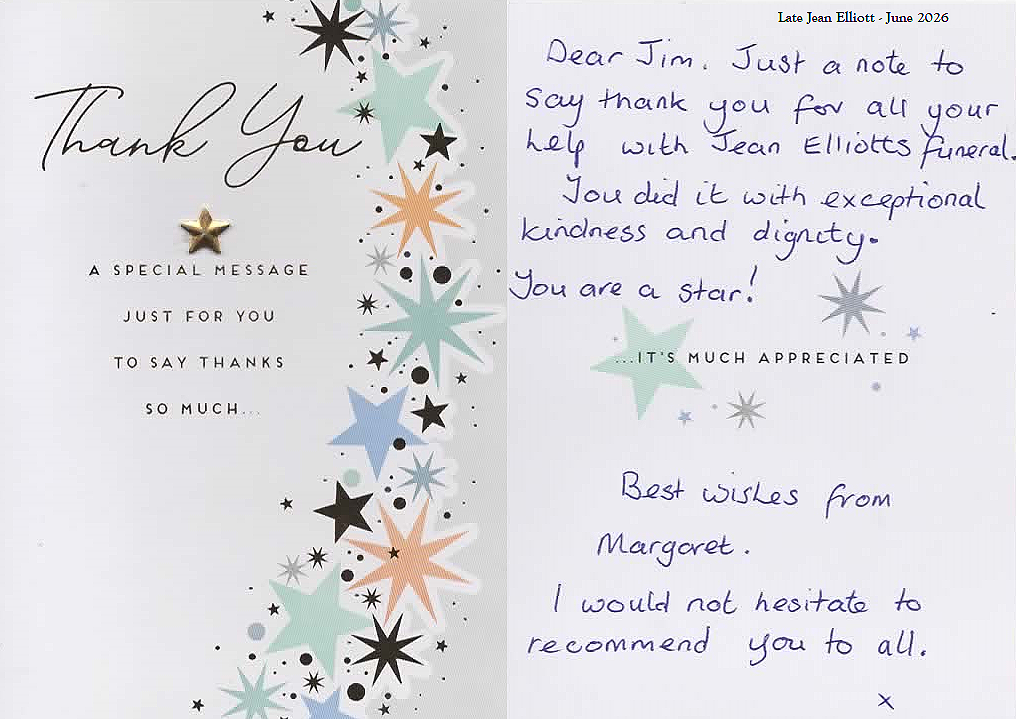 Thank You
A SPECIAL MESSAGE
JUST FOR YOU
TO SAY THANKS
SO MUCH...
Late Jean Elliott - June 2026
Dear Jim. Just a note to
say thank you for all your
help with Jean Elliotts funeral.
You did it with exceptional
kindness and dignity.
You are a star!
...IT'S MUCH APPRECIATED
Best wishes from
Margaret.
I would not hesitate to
recommend you to all.
x